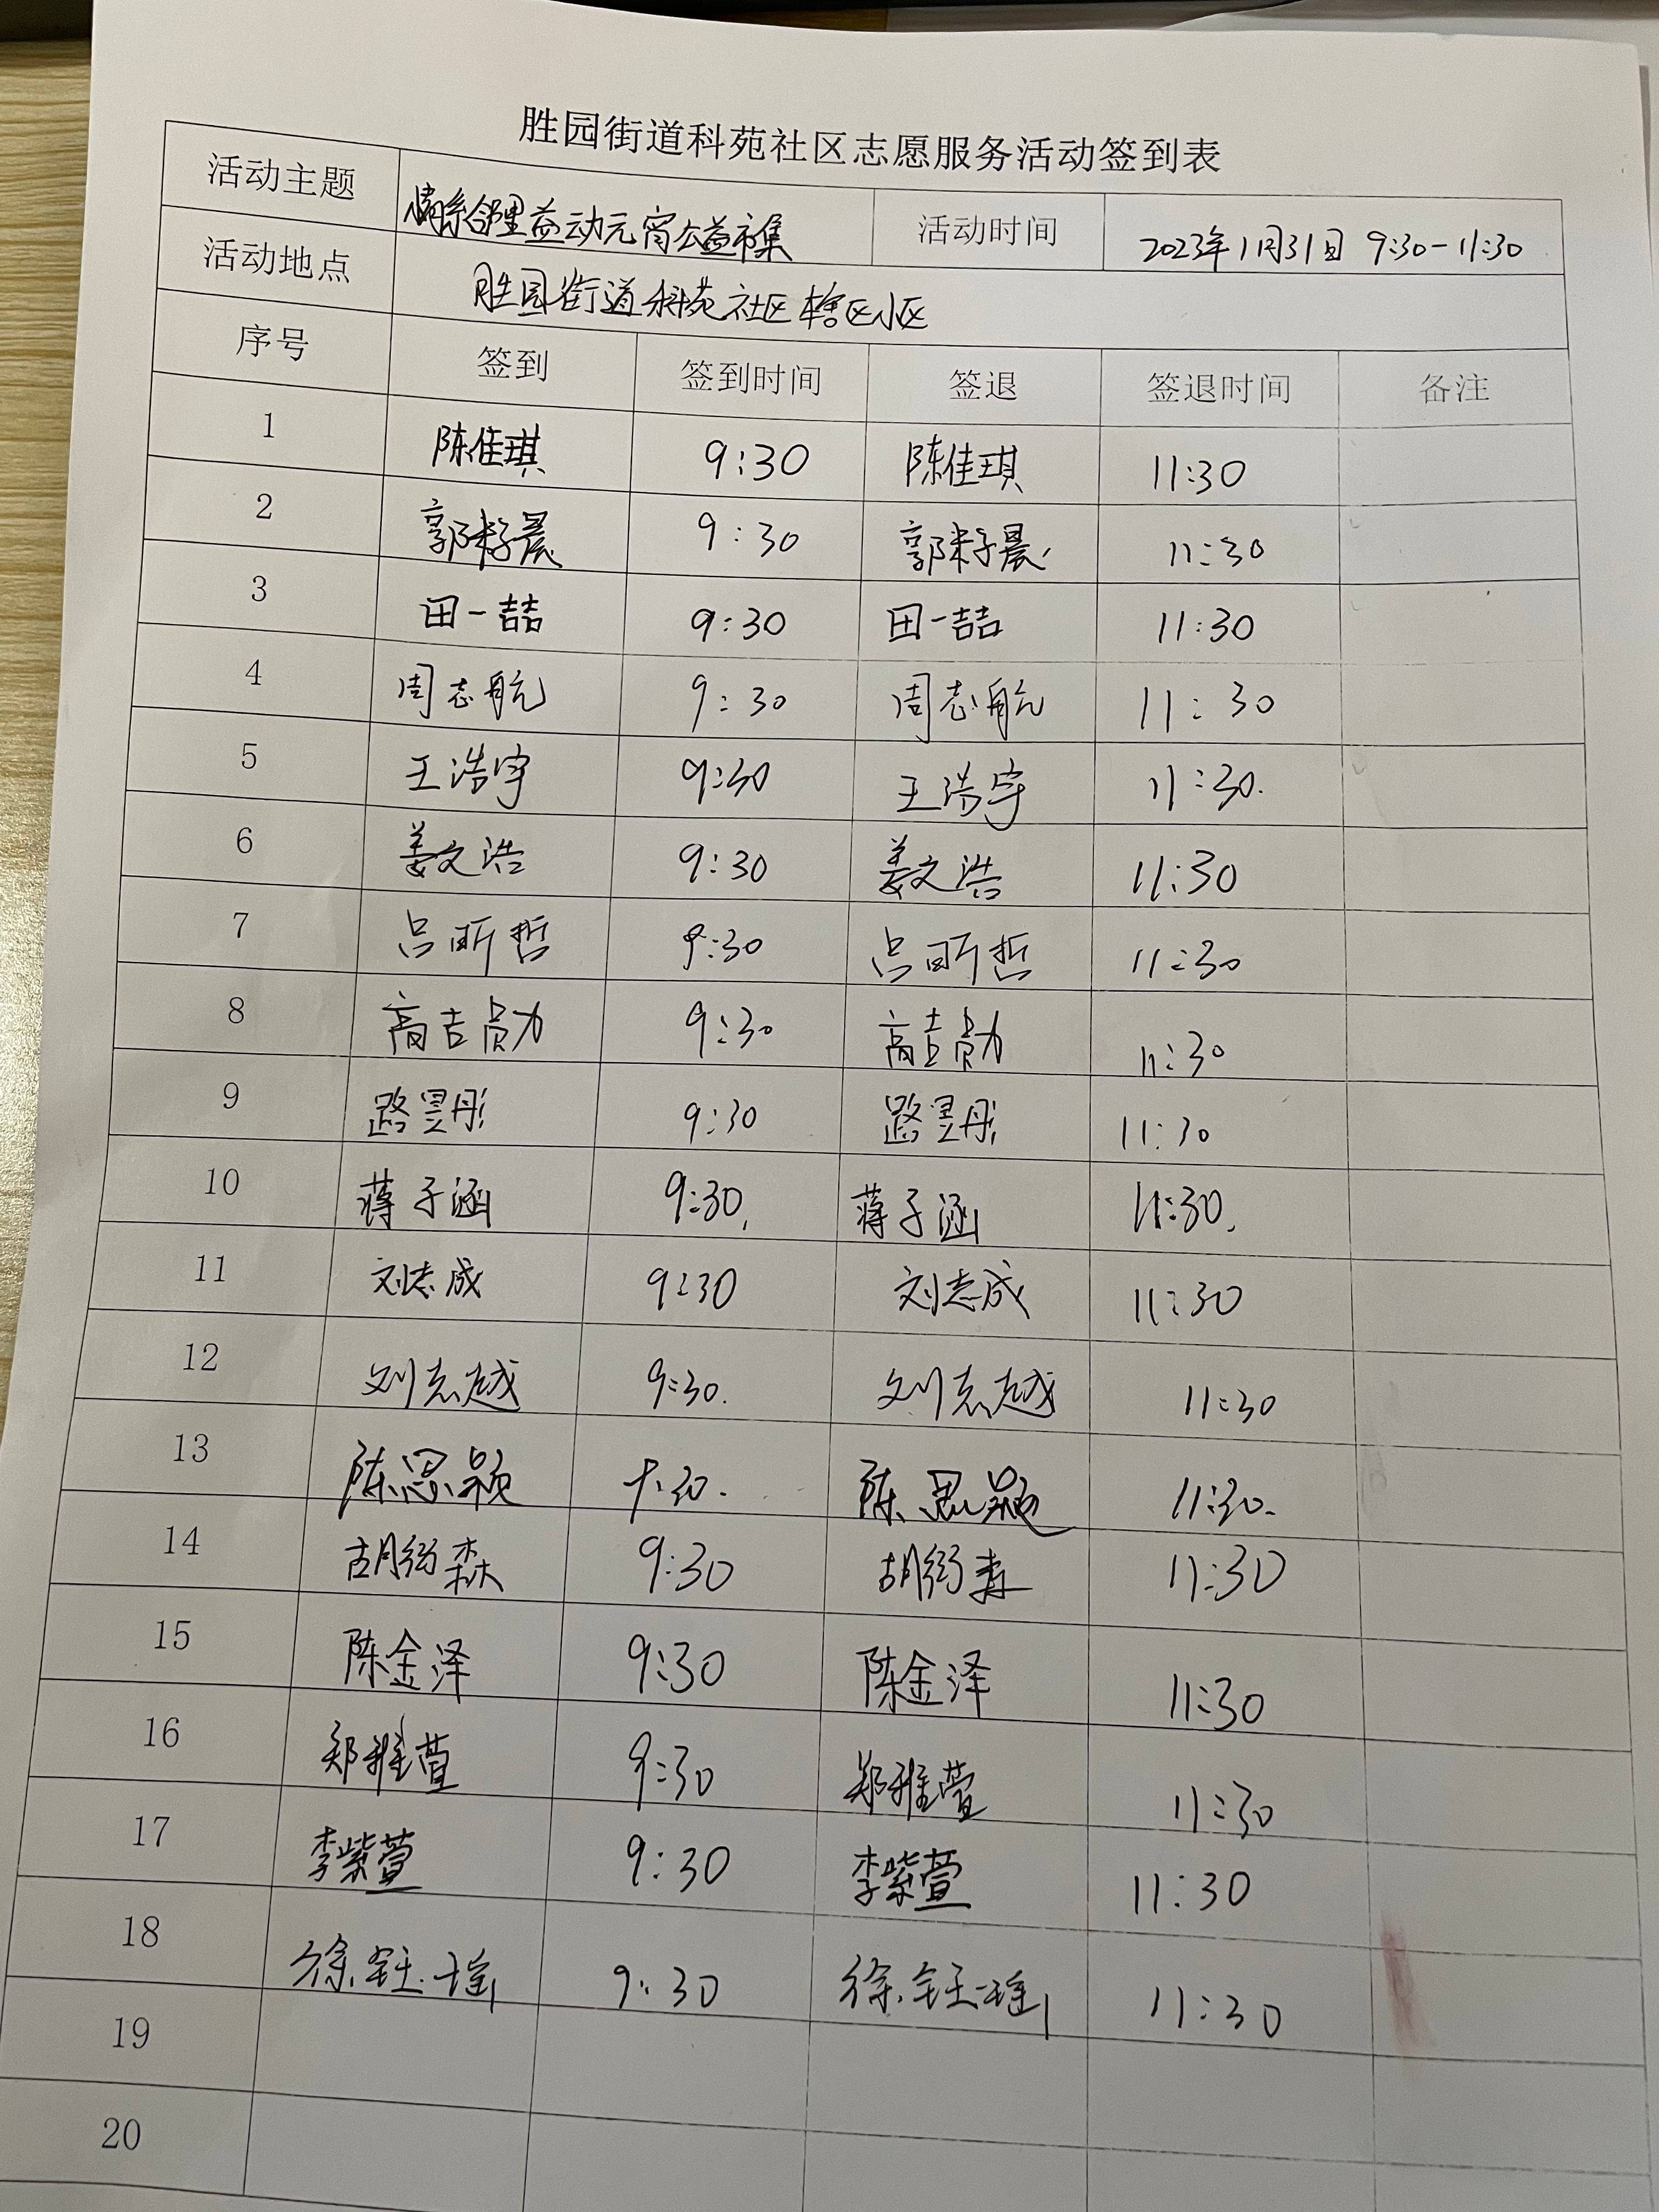 胜园街道科苑社区志愿服务活动签到表
活动主题 情系邻里益动元宵公益市集 活动时间 2023年1月31日 9:30-11:30
活动地点 胜园街道科苑社区辖区小区
序号 签到 签到时间 签退 签退时间 备注
1 陈佳琪 9:30 陈佳琪 11:30
2 郭籽晨 9:30 郭籽晨 11:30
3 田一喆 9:30 田一喆 11:30
4 周志航 9:30 周志航 11:30
5 王浩宇 9:30 王浩宇 11:30
6 姜文浩 9:30 姜文浩 11:30
7 吕昕哲 9:30 吕昕哲 11:30
8 高吉勛 9:30 高吉勛 11:30
9 路昱彤 9:30 路昱彤 11:30
10 蒋子涵 9:30. 蒋子涵 11:30.
11 刘志成 9:30 刘志成 11:30
12 刘志越 9:30. 刘志越 11:30
13 陈思颖 9:30. 陈思颖 11:30.
14 9:30 11:30
15 陈金泽 9:30 陈金泽 11:30
16 郑雅萱 9:30 郑雅萱 11:30
17 李紫萱 9:30 李紫萱 11:30
18 徐钰瑶 9:30 徐钰瑶 11:30
19
20